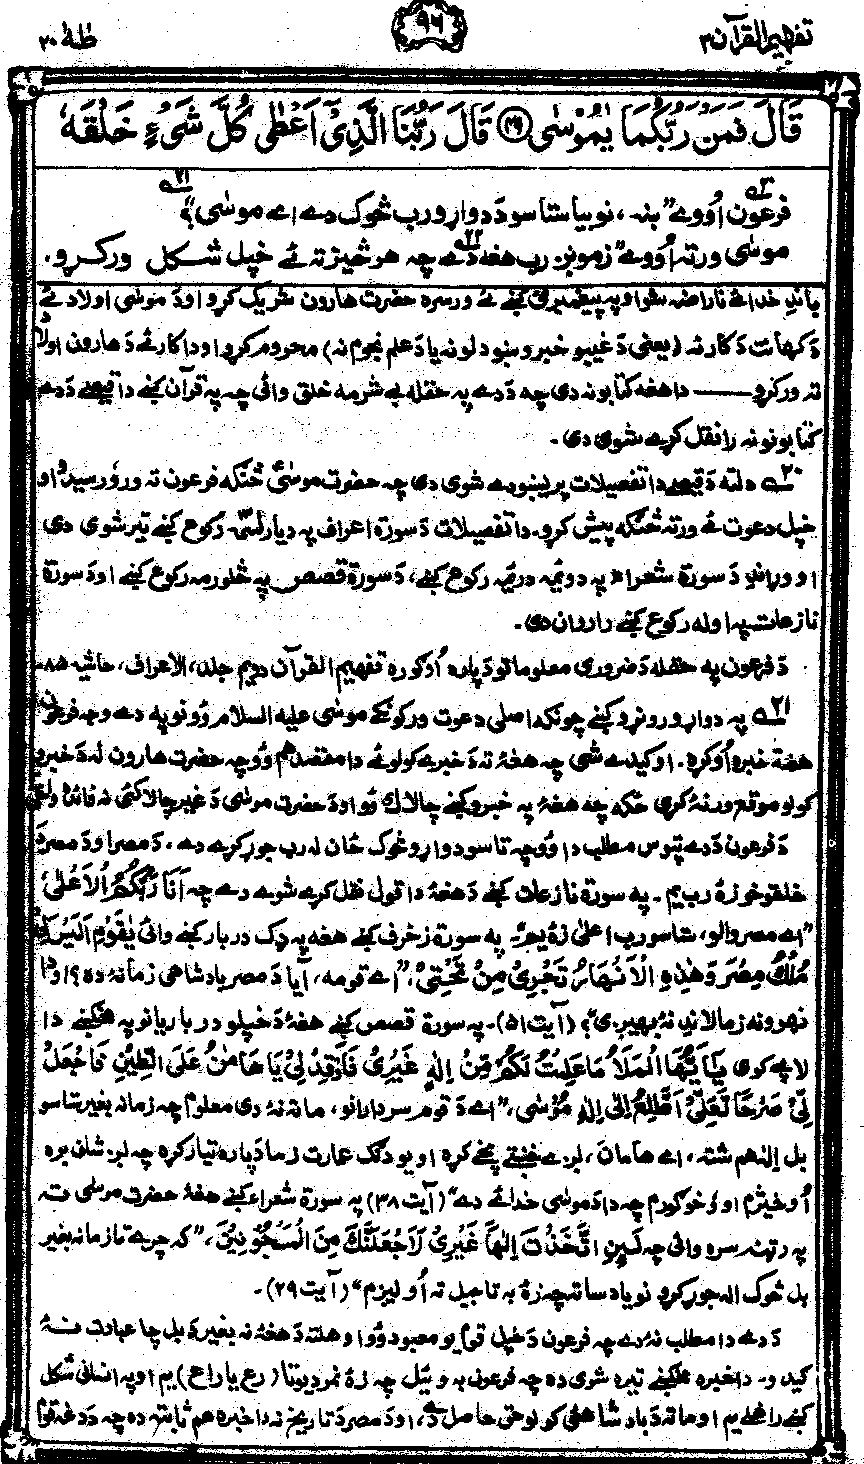 تفهیم القرآن ۳
۹۶
طٰهٰ ۲۰
قَالَ فَمَنْ رَّبُّكُمَا يٰمُوْسٰى ﴿۴۹﴾ قَالَ رَبُّنَا الَّذِيْٓ اَعْطٰى كُلَّ شَيْءٍ خَلْقَهٗ
فرعون اُووے "ښه، نو بيا ستاسو د دواړو رب څوک دے اے موسٰی؟" ۲۱
موسٰی ورته اُووے "زمونږ رب هغه دے چه هر څيز ته ئے خپل شکل ورکړو.
باندِ خدائے ناراضه شو او په پيغمبرئ کښے ئے ورسره حضرت هارون شريک کړو او د موسٰی اولاد ئے
د کهانت د کار نه (يعنی د غيبو خبرو ښودلو نه يا د علم نجوم نه) محروم کړو او دا کار ئے د هارون اولاد
ته ورکړو ــــ دا هغه کتابونه دی چه د دے په حقله بے شرمه خلق وائی چه په قرآن کښے دا قيصے د دے
کتابونو نه رانقل کړے شوی دی.
۲۰ دلته د قيصے دا تفصيلات پريښودے شوی دی چه حضرت موسٰیؑ څنګه فرعون ته ورؤرسيدو او
خپل دعوت ئے ورته څنګه پيش کړو. دا تفصيلات د سورة اعراف په ديارلسمه رکوع کښے تېر شوی دی
او وړاندِ د سورة شعراء په دوئمه دريمه رکوع کښے، د سورة قصص په څلورمه رکوع کښے او د سورة
نازعات په اوله رکوع کښے راروان دی.
د فرعون په حقله د ضروری معلوماتو د پاره اُوګوره تفهيم القرآن دويم جلد، الاعراف، حاشيه ۸۵
۲۱ په دواړو روڼو کښے چونکه اصلی دعوت ورکونکے موسٰی عليه السلام وُو نو په دے وجه فرعون
هغهٔ ته خبره اُوکړه. او کيدے شی چه هغهٔ ته د خبرے کولو ئے دا مقصد هم وُو چه حضرت هارون له د خبرو
کولو موقع ورنهٔ کړی ځکه چه هغهٔ په خبرو کښے چالاک وُو او د حضرت موسٰی د غير چالاکئ نه فائده واخلی
د فرعون د دے تپوس مطلب دا وُو چه تاسو دواړو څوک ځان له رب جوړ کړے دے، د مصر او د مصر د
خلقو خو زهٔ رب يم. په سورة نازعات کښے د هغهٔ دا قول نقل کړے شوے دے چه اَنَا رَبُّكُمُ الْاَعْلٰى،
"اے مصر والو، ستاسو رب اعلٰی زهٔ يم". په سورة زخرف کښے هغه په ډک دربار کښے وائی يٰقَوْمِ اَلَيْسَ لِيْ
مُلْكُ مِصْرَ وَهٰذِهِ الْاَنْهَارُ تَجْرِيْ مِنْ تَحْتِيْ، "اے قومه، آيا د مصر بادشاهی زما نهٔ ده؟ او دا
نهرونه زما لاندِ نهٔ بهيږی؟" (آيت ۵۱). په سورة قصص کښے هغهٔ د خپلو درباريانو په مخکښے دا
لاپے کوی يٰٓاَيُّهَا الْمَلَاُ مَا عَلِمْتُ لَكُمْ مِّنْ اِلٰهٍ غَيْرِيْ فَاَوْقِدْ لِيْ يَا هَامٰنُ عَلَى الطِّيْنِ فَاجْعَلْ
لِّيْ صَرْحًا لَّعَلِّيْٓ اَطَّلِعُ اِلٰٓى اِلٰهِ مُوْسٰى، "اے د قوم سردارانو، ما ته نهٔ دی معلوم چه زما نه بغير ستاسو
بل اِلٰه هم شته، اے هامان، لږے خښتے پخے کړه او يو دنګ عمارت زما د پاره تيار کړه چه لږ شان پره
اُوخېژم او وُخوګورم چه دا د موسٰی خدائے دے" (آيت ۳۸) په سورة شعراء کښے هغهٔ حضرت موسٰی ته
په رټنه سره وائی چه لَئِنِ اتَّخَذْتَ اِلٰهًا غَيْرِيْ لَاَجْعَلَنَّكَ مِنَ الْمَسْجُوْنِيْنَ، "که چرے تا زما نه بغير
بل څوک اله جوړ کړو نو ياد ساته چه زهٔ به تا جيل ته اُوليږم" (آيت ۲۹).
د دے دا مطلب نهٔ دے چه فرعون د خپل قوم يو معبود وُو او هلته د هغهٔ نه بغير د بل چا عبادت نهٔ
کيدو. دا خبره مخکښے تېره شوی ده چه فرعون به وئيل چه زهٔ نمر ديوتا (رع يا راع) يم او په انسانی شکل
کښے راغلے يم او ما ته د بادشاهئ کولو حق حاصل دے، او د مصر د تاريخ نه دا خبره هم ثابته ده چه د دغه قوم